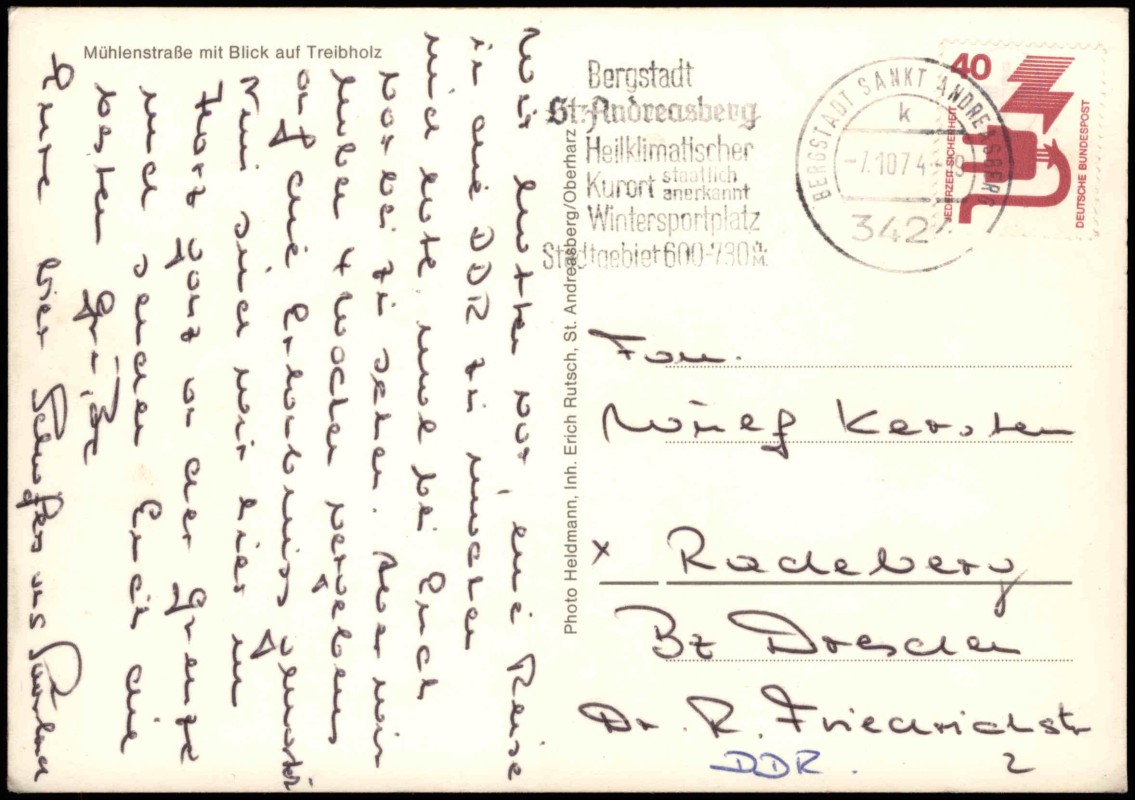 Mühlenstraße mit Blick auf Treibholz
Wir hatten vor, eine Reise
in die DDR zu machen
und heute mal bei Euch
vorbei zu sehen. Aber wir
haben 4 Wochen vergebens
auf die Erlaubniss gewartet
Nun sind wir hier im
Harz ganz an der Grenze
und senden Euch die
besten Grüße
Eure vier
Photo Heldmann, Inh. Erich Rutsch, St. Andreasberg/Oberharz
Bergstadt
St. Andreasberg
Heilklimatischer
Kurort staatlich anerkannt
Wintersportplatz
Stadtgebiet 600-730 m
BERGSTADT SANKT ANDREASBERG
k
-7.10.74
342
40
JEDERZEIT SICHERHEIT
DEUTSCHE BUNDESPOST
Fam.
Kersten
x Radeberg
Bz Dresden
Dr. R. Friedrichstr
2
DDR.